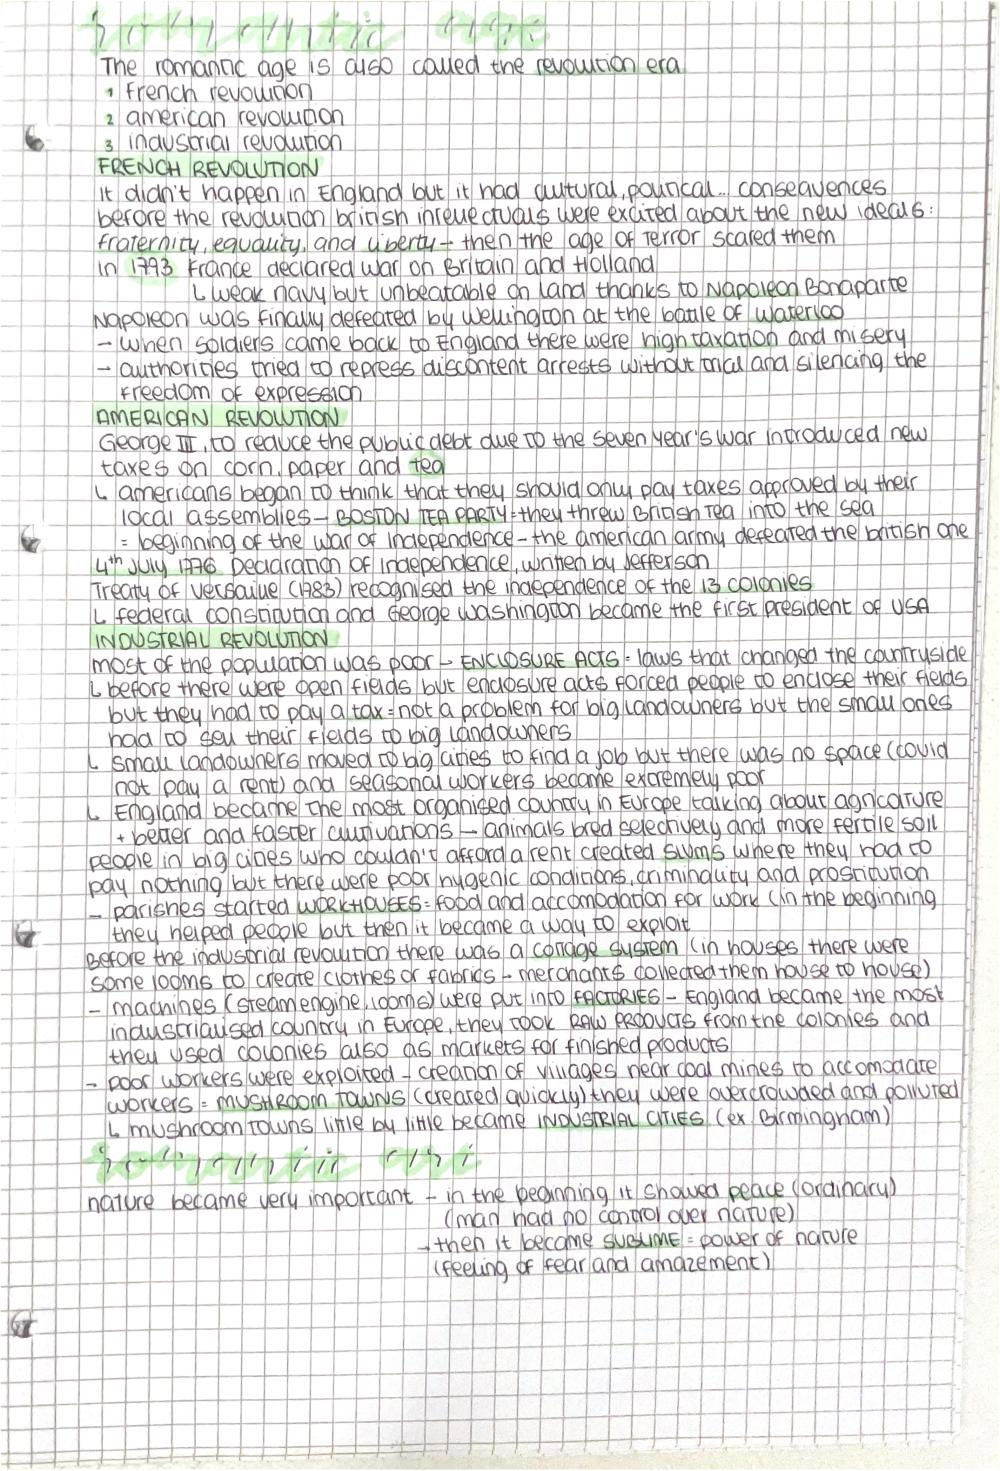 romantic age
The romantic age is also called the revolution era
1 french revolution
2 american revolution
3 industrial revolution
FRENCH REVOLUTION
it didn't happen in England but it had cultural, political.. consequences
before the revolution british intellectuals were excited about the new ideals:
fraternity, equality, and liberty → then the age of Terror scared them
in 1793 France declared war on Britain and Holland
↳ weak navy but unbeatable on land thanks to Napoleon Bonaparte
Napoleon was finally defeated by Wellington at the battle of Waterloo
– when soldiers came back to England there were high taxation and misery
– authorities tried to repress discontent arrests without trial and silencing the
freedom of expression
AMERICAN REVOLUTION
George III, to reduce the public debt due to the seven year's war introduced new
taxes on corn, paper and tea
↳ americans began to think that they should only pay taxes approved by their
local assemblies – BOSTON TEA PARTY = they threw British Tea into the sea
= beginning of the war of independence – the american army defeated the british one
4th July 1776 Declaration of independence, written by Jefferson
Treaty of Versaille (1983) recognised the independence of the 13 colonies
↳ federal constitution and George Washington became the first president of USA
INDUSTRIAL REVOLUTION
most of the population was poor – ENCLOSURE ACTS = laws that changed the countryside
↳ before there were open fields but enclosure acts forced people to enclose their fields
but they had to pay a tax = not a problem for big landowners but the small ones
had to sell their fields to big landowners
↳ small landowners moved to big cities to find a job but there was no space (could
not pay a rent) and seasonal workers became extremely poor
↳ England became the most organised country in Europe talking about agricature
+ better and faster cultivations → animals bred selectively and more fertile soil
people in big cities who couldn't afford a rent created slums where they had to
pay nothing but there were poor hygenic conditions, criminality and prostitution
– parishes started WORKHOUSES = food and accomodation for work (in the beginning
they helped people but then it became a way to exploit
Before the industrial revolution there was a cottage system (in houses there were
some looms to create clothes or fabrics → merchants collected them house to house)
– machines (steam engine, looms) were put into FACTORIES – England became the most
industrialised country in Europe, they took RAW PRODUCTS from the colonies and
they used colonies also as markets for finished products
– poor workers were exploited – creation of villages near coal mines to accomodate
workers = MUSHROOM TOWNS (created quickly) they were overcrowded and polluted
↳ mushroom towns little by little became INDUSTRIAL CITIES (ex. Birmingham)
romantic art
nature became very important – in the beginning it showed peace (ordinary)
(man had no control over nature)
→ then it became SUBLIME = power of nature
(feeling of fear and amazement)